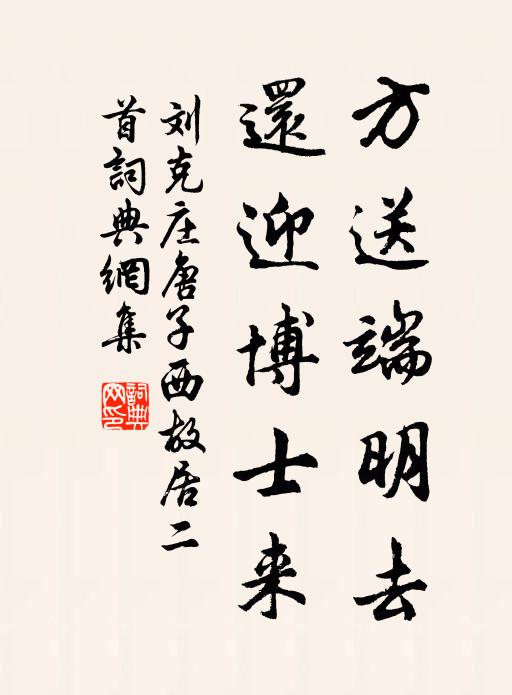 方送端明去
還迎博士来
刘克庄唐子西故居二
首詞典網集
詞典
网印